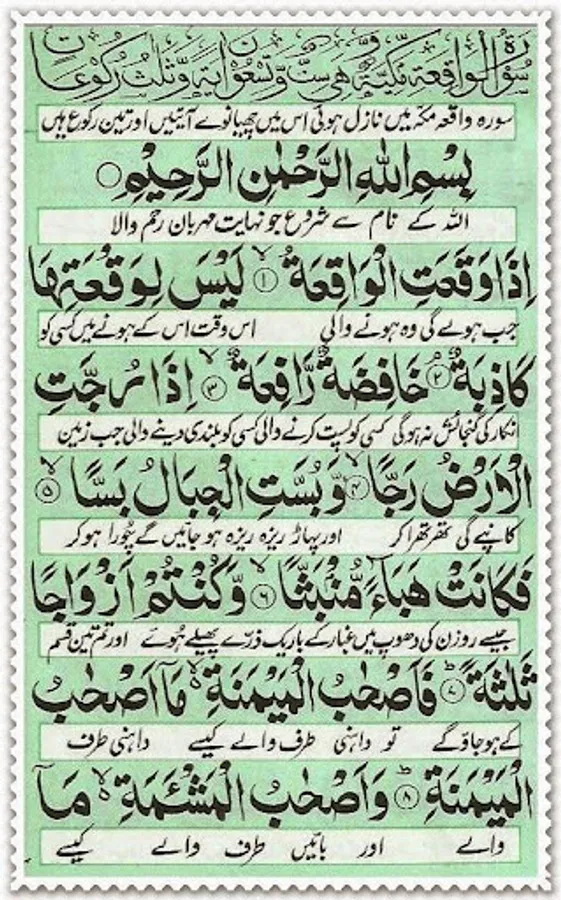 سُوْرَةُ الْوَاقِعَةِ مَكِّيَّةٌ وَّهِيَ سِتٌّ وَّتِسْعُوْنَ اٰيَةً وَّثَلٰثُ رُكُوْعَاتٍ
سورہ واقعہ مکہ میں نازل ہوئی اس میں چھیانوے آیتیں اور تین رکوع ہیں
بِسْمِ اللّٰهِ الرَّحْمٰنِ الرَّحِيْمِ ○
اللہ کے نام سے شروع جو نہایت مہربان رحم والا
اِذَا وَقَعَتِ الْوَاقِعَةُ ۙ﴿۱﴾ لَيْسَ لِوَقْعَتِهَا
جب ہولے گی وہ ہونے والی اس وقت اس کے ہونے میں کسی کو
كَاذِبَةٌ ۘ﴿۲﴾ خَافِضَةٌ رَّافِعَةٌ ۙ﴿۳﴾ اِذَا رُجَّتِ
انکار کی گنجائش نہ ہوگی کسی کو پست کرنے والی کسی کو بلندی دینے والی جب زمین
الْاَرْضُ رَجًّا ۙ﴿۴﴾ وَّبُسَّتِ الْجِبَالُ بَسًّا ۙ﴿۵﴾
کانپے گی تھر تھرا کر اور پہاڑ ریزہ ریزہ ہو جائیں گے چُورا ہو کر
فَكَانَتْ هَبَآءً مُّنْۢبَثًّا ۙ﴿۶﴾ وَّكُنْتُمْ اَزْوَاجًا
جیسے روزن کی دھوپ میں غبار کے باریک ذرّے پھیلے ہُوئے اور تم تین قسم
ثَلٰثَةً ؕ﴿۷﴾ فَاَصْحٰبُ الْمَيْمَنَةِ ۙ۬ مَاۤ اَصْحٰبُ
کے ہو جاؤ گے تو داہنی طرف والے کیسے داہنی طرف
الْمَيْمَنَةِ ؕ﴿۸﴾ وَاَصْحٰبُ الْمَشْئَمَةِ ۙ۬ مَاۤ
والے اور بائیں طرف والے کیسے